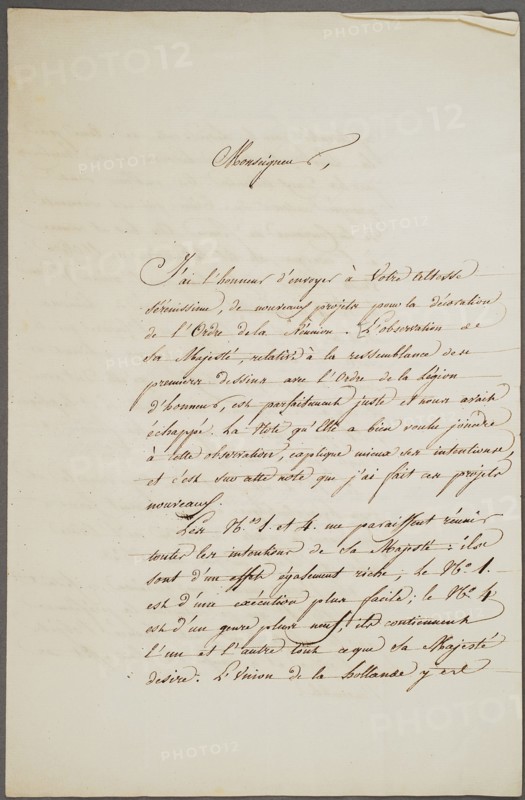 Monseigneur,
J'ai l'honneur d'envoyer à Votre Altesse
Sérénissime, de nouveaux projets pour la décoration
de l'Ordre de la Réunion. L'observation de
Sa Majesté, relative à la ressemblance des
premiers dessins avec l'Ordre de la Légion
d'honneur, est parfaitement juste et nous avait
échappé. La Note qu'Elle a bien voulu joindre
à cette observation, explique mieux ses intentions,
et c'est sur cette note que j'ai fait ces projets
nouveaux.
Les Nos. 1. et 4. me paraissent réunir
toutes les intentions de Sa Majesté : ils
sont d'un effet également riche ; le No. 1.
est d'une exécution plus facile ; le No. 4
est d'un genre plus neuf, ils contiennent
l'un et l'autre tout ce que Sa Majesté
desire. L'Union de la hollande y est
PHOTO12
PHOTO12
PHOTO12
PHOTO12
PHOTO12
PHOTO12
PHOTO12
PHOTO12